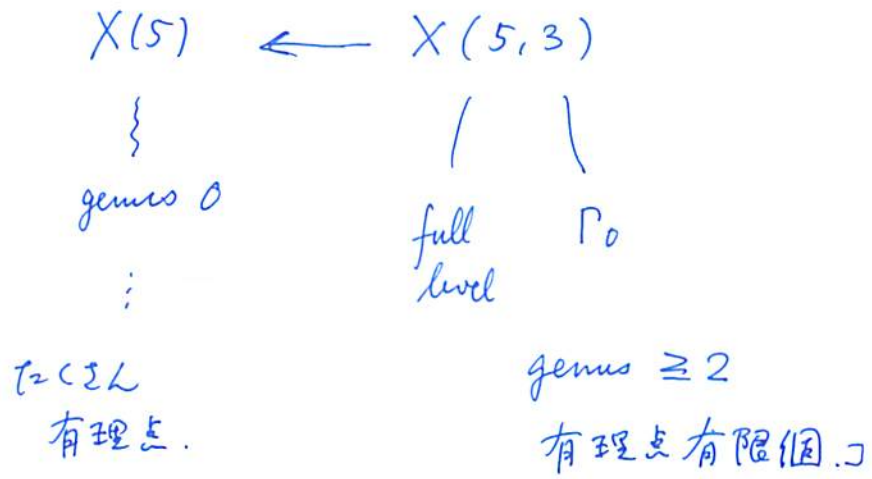 X(5) ← X(5,3)
genus 0
full level
Γ0
⋮
たくさん
有理点.
genus ≧ 2
有理点有限個.」